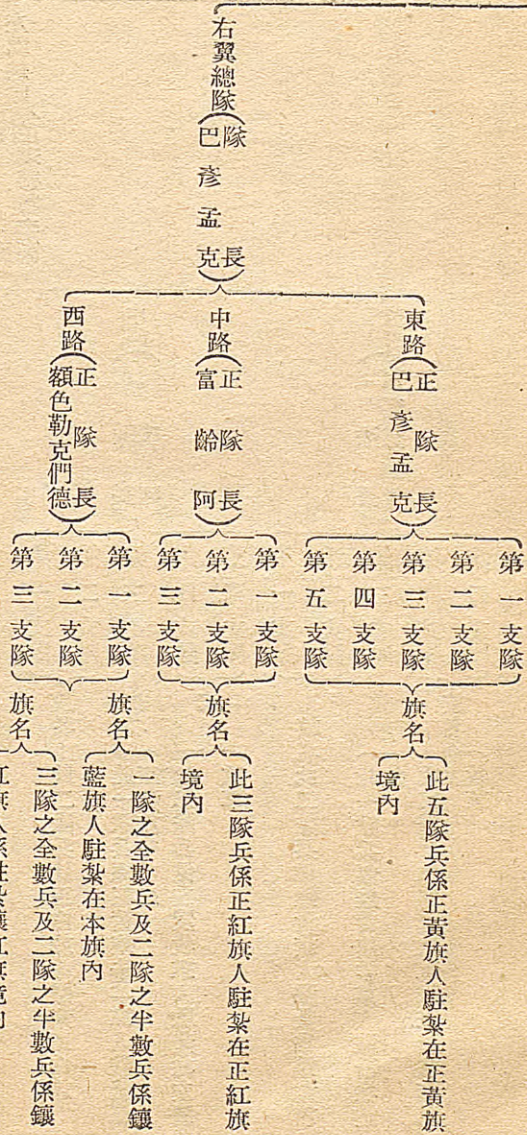 右翼總隊（隊長巴彥孟克）
東路（正隊長巴彥孟克）
第一支隊
第二支隊
第三支隊
第四支隊
第五支隊
旗名
此五隊兵係正黃旗人駐紮在正黃旗
境內
中路（正隊長富齡阿）
第一支隊
第二支隊
第三支隊
旗名
此三隊兵係正紅旗人駐紮在正紅旗
境內
西路（正隊長額色勒克們德）
第一支隊
第二支隊
第三支隊
旗名
一隊之全數兵及二隊之半數兵係鑲
藍旗人駐紮在本旗內
旗名
三隊之全數兵及二隊之半數兵係鑲
紅旗人係駐紮鑲紅旗境內